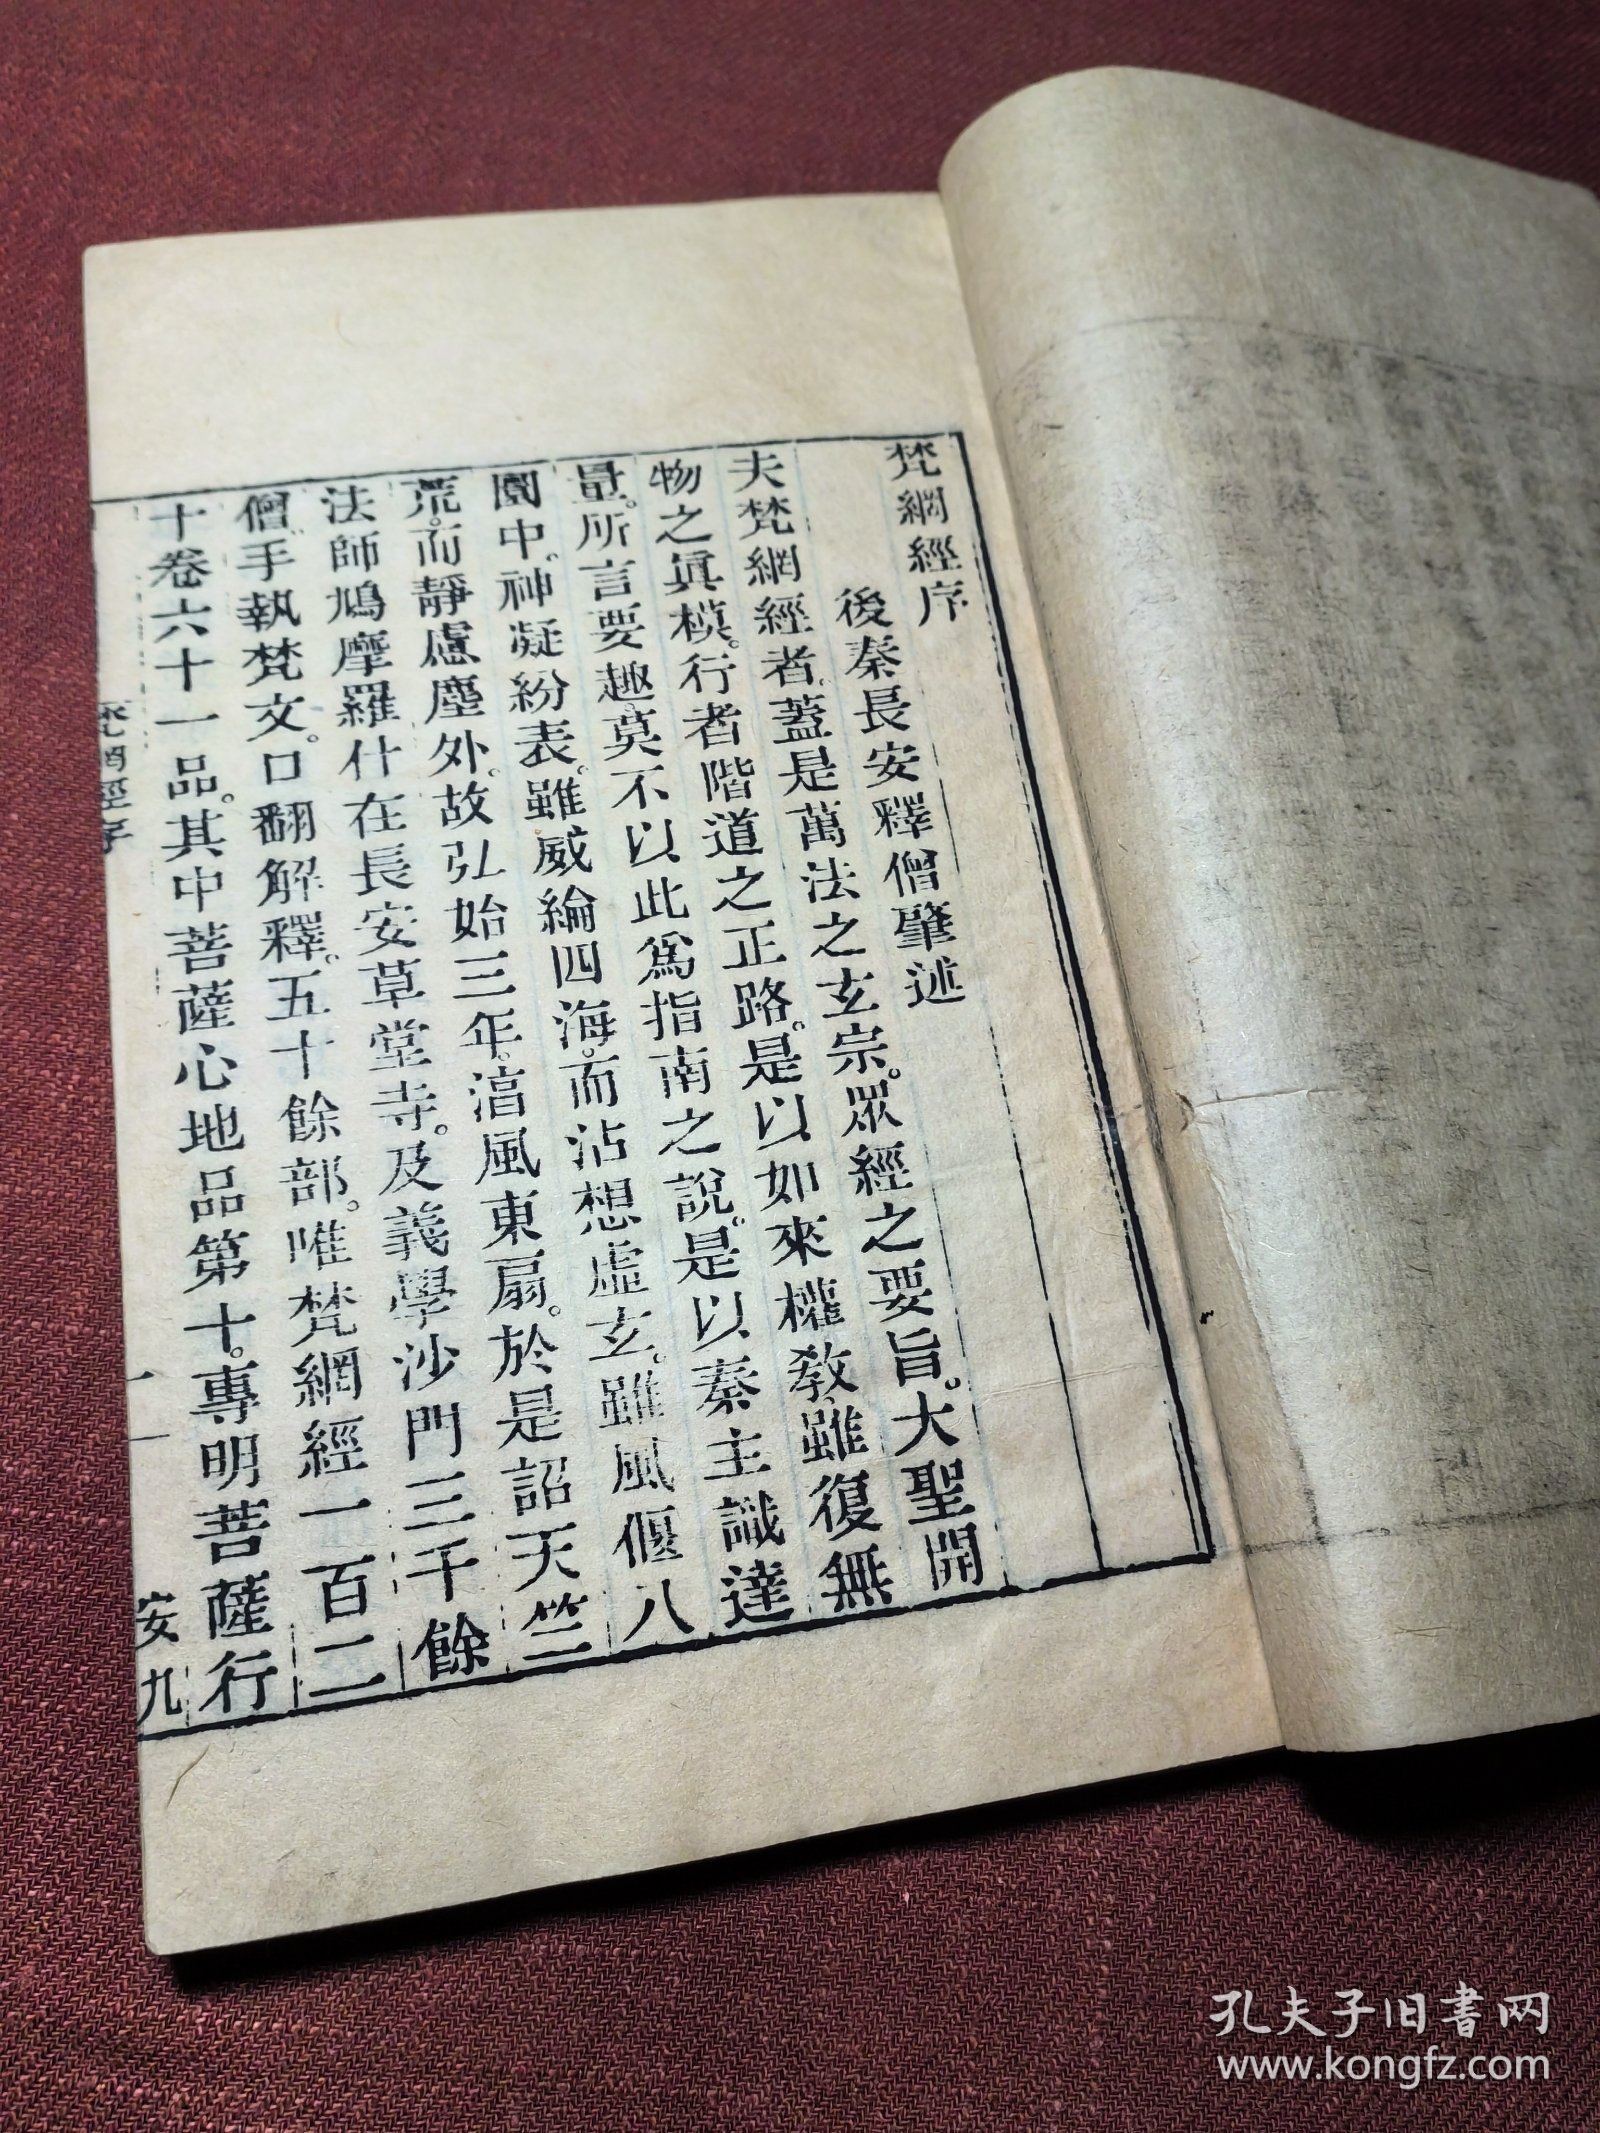 梵網經序
後秦長安釋僧肇述
夫梵網經者。蓋是萬法之玄宗。眾經之要旨。大聖開
物之眞模。行者階道之正路。是以如來權敎。雖復無
量。所言要趣。莫不以此爲指南之說。是以秦主識達
圜中。神凝紛表。雖威綸四海。而沾想虛玄。雖風偃八
荒。而靜慮塵外。故弘始三年。淯風東扇。於是詔天竺
法師鳩摩羅什在長安草堂寺。及義學沙門三千餘
僧。手執梵文。口翻解釋。五十餘部。唯梵網經一百二
十卷六十一品。其中菩薩心地品第十。專明菩薩行
經序
一
安九
孔夫子旧書网
www.kongfz.com